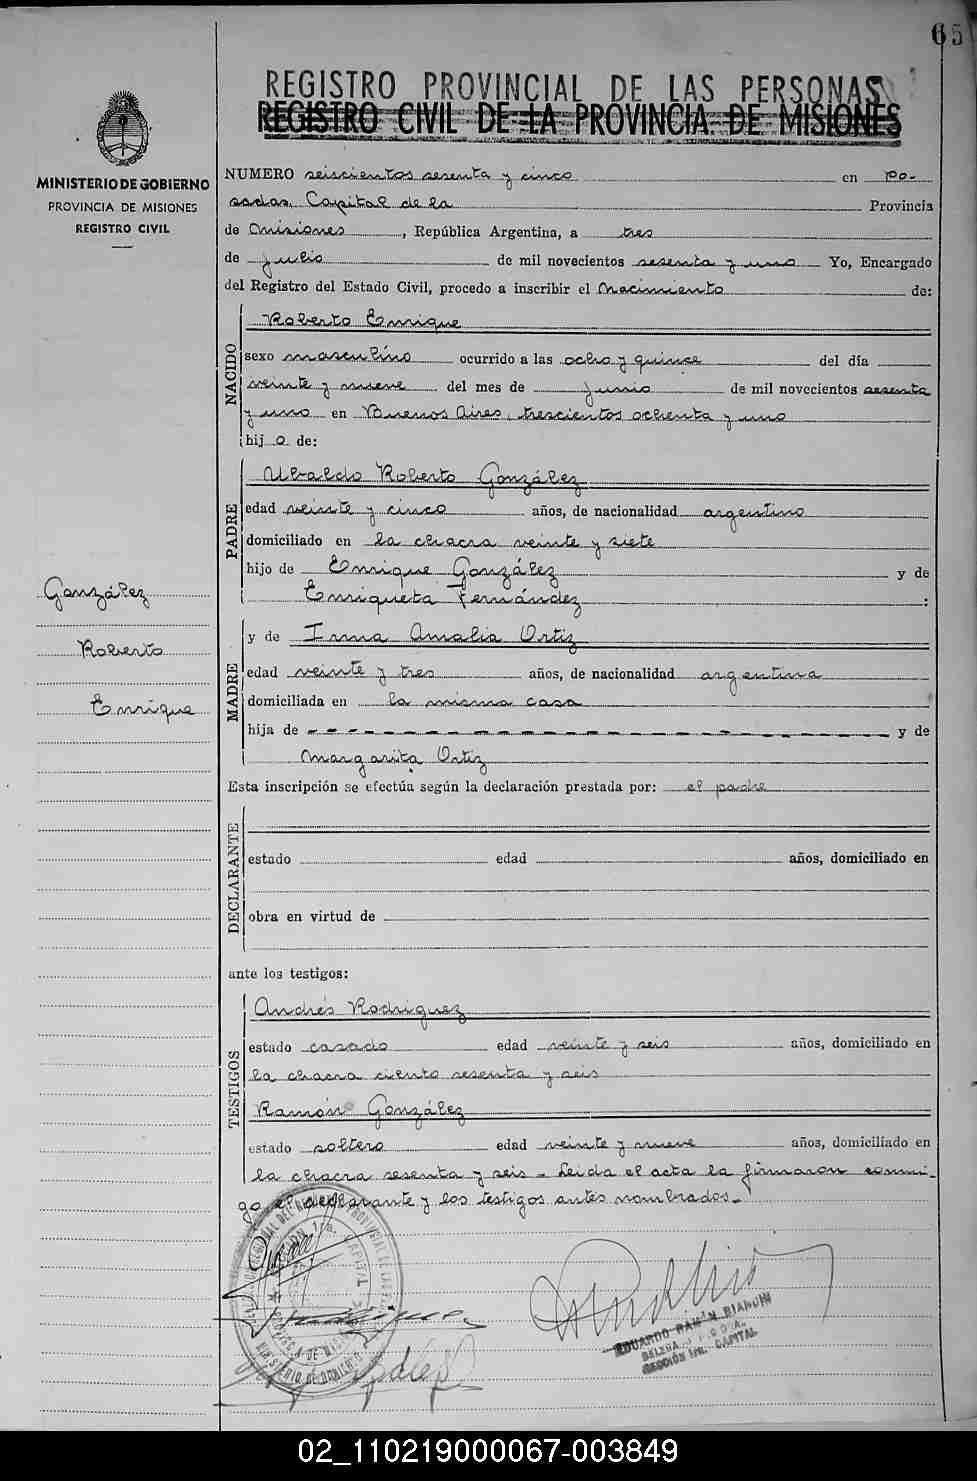 65
REGISTRO PROVINCIAL DE LAS PERSONAS
REGISTRO CIVIL DE LA PROVINCIA DE MISIONES
MINISTERIO DE GOBIERNO
PROVINCIA DE MISIONES
REGISTRO CIVIL
NUMERO seiscientos sesenta y cinco en Po-
sadas, Capital de la Provincia
de Misiones, República Argentina, a tres
de julio de mil novecientos sesenta y uno Yo, Encargado
del Registro del Estado Civil, procedo a inscribir el Nacimiento de:
NACIDO
Roberto Enrique
sexo masculino ocurrido a las ocho y quince del día
veinte y nueve del mes de junio de mil novecientos sesenta
y uno en Buenos Aires, trescientos ochenta y uno
hij o de:
PADRE
Ubaldo Roberto González
edad veinte y cinco años, de nacionalidad argentino
domiciliado en la chacra veinte y siete
hijo de Enrique González y de
Enriqueta Fernández :
González
Roberto
Enrique
MADRE
y de Irma Amalia Ortiz
edad veinte y tres años, de nacionalidad argentina
domiciliada en la misma casa
hija de - - - - - - - - - - - - - - - - - - - - y de
Margarita Ortiz
Esta inscripción se efectúa según la declaración prestada por: el padre
DECLARANTE
estado edad años, domiciliado en
obra en virtud de
ante los testigos:
TESTIGOS
Andrés Rodriguez
estado casado edad veinte y seis años, domiciliado en
la chacra ciento sesenta y seis
Ramón González
estado soltero edad veinte y nueve años, domiciliado en
la chacra sesenta y seis - Leida el acta la firmaron conmi-
go el declarante y los testigos antes nombrados.-
EDUARDO RAMÓN BIANCHI
SECCIÓN 1ra. CAPITAL
02_110219000067-003849